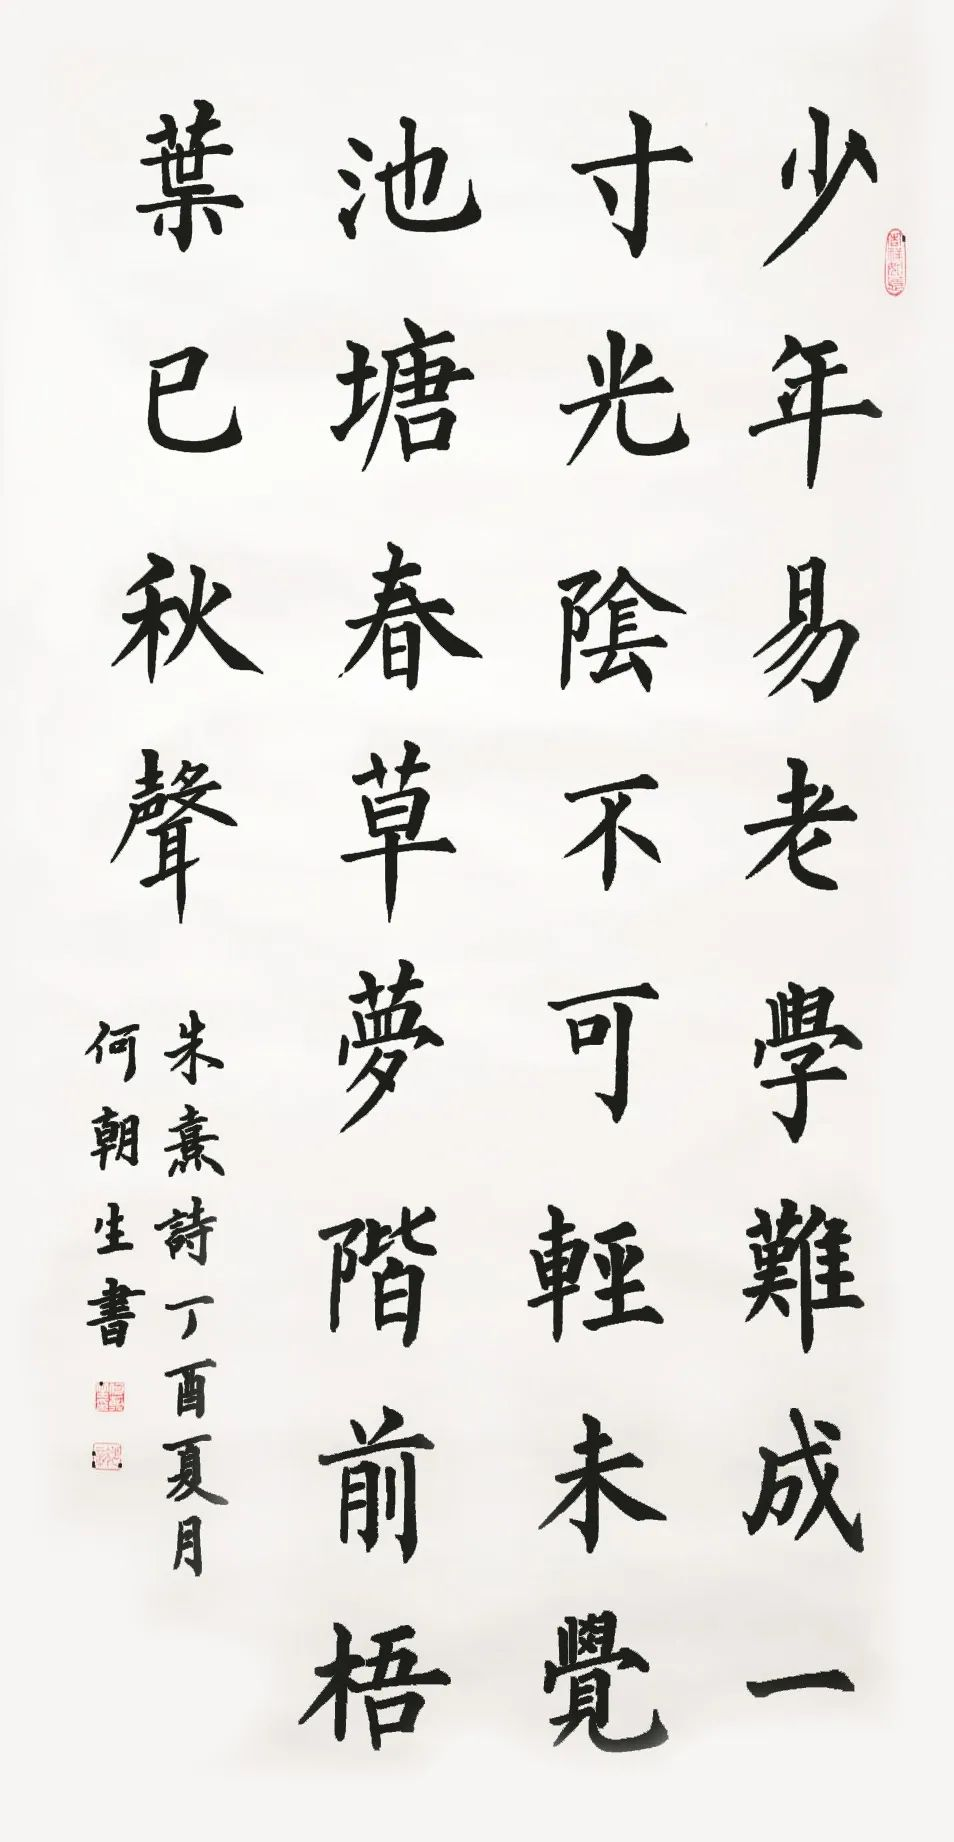 少年易老學難成一
寸光陰不可輕未覺
池塘春草夢階前梧
葉已秋聲
朱熹詩丁酉夏月
何朝生書